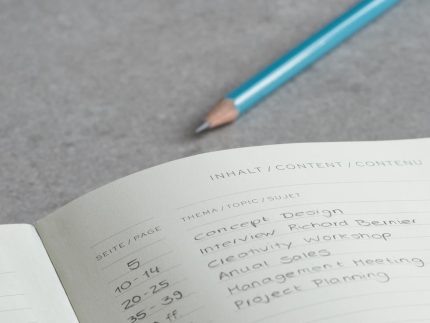 INHALT / CONTENT / CONTENU
SEITE / PAGE THEMA / TOPIC / SUJET
5 Concept Design
10-14 Interview Richard Bernier
20-25 Creativity Workshop
35-39 Anual Sales
ff Management Meeting
Project Planning